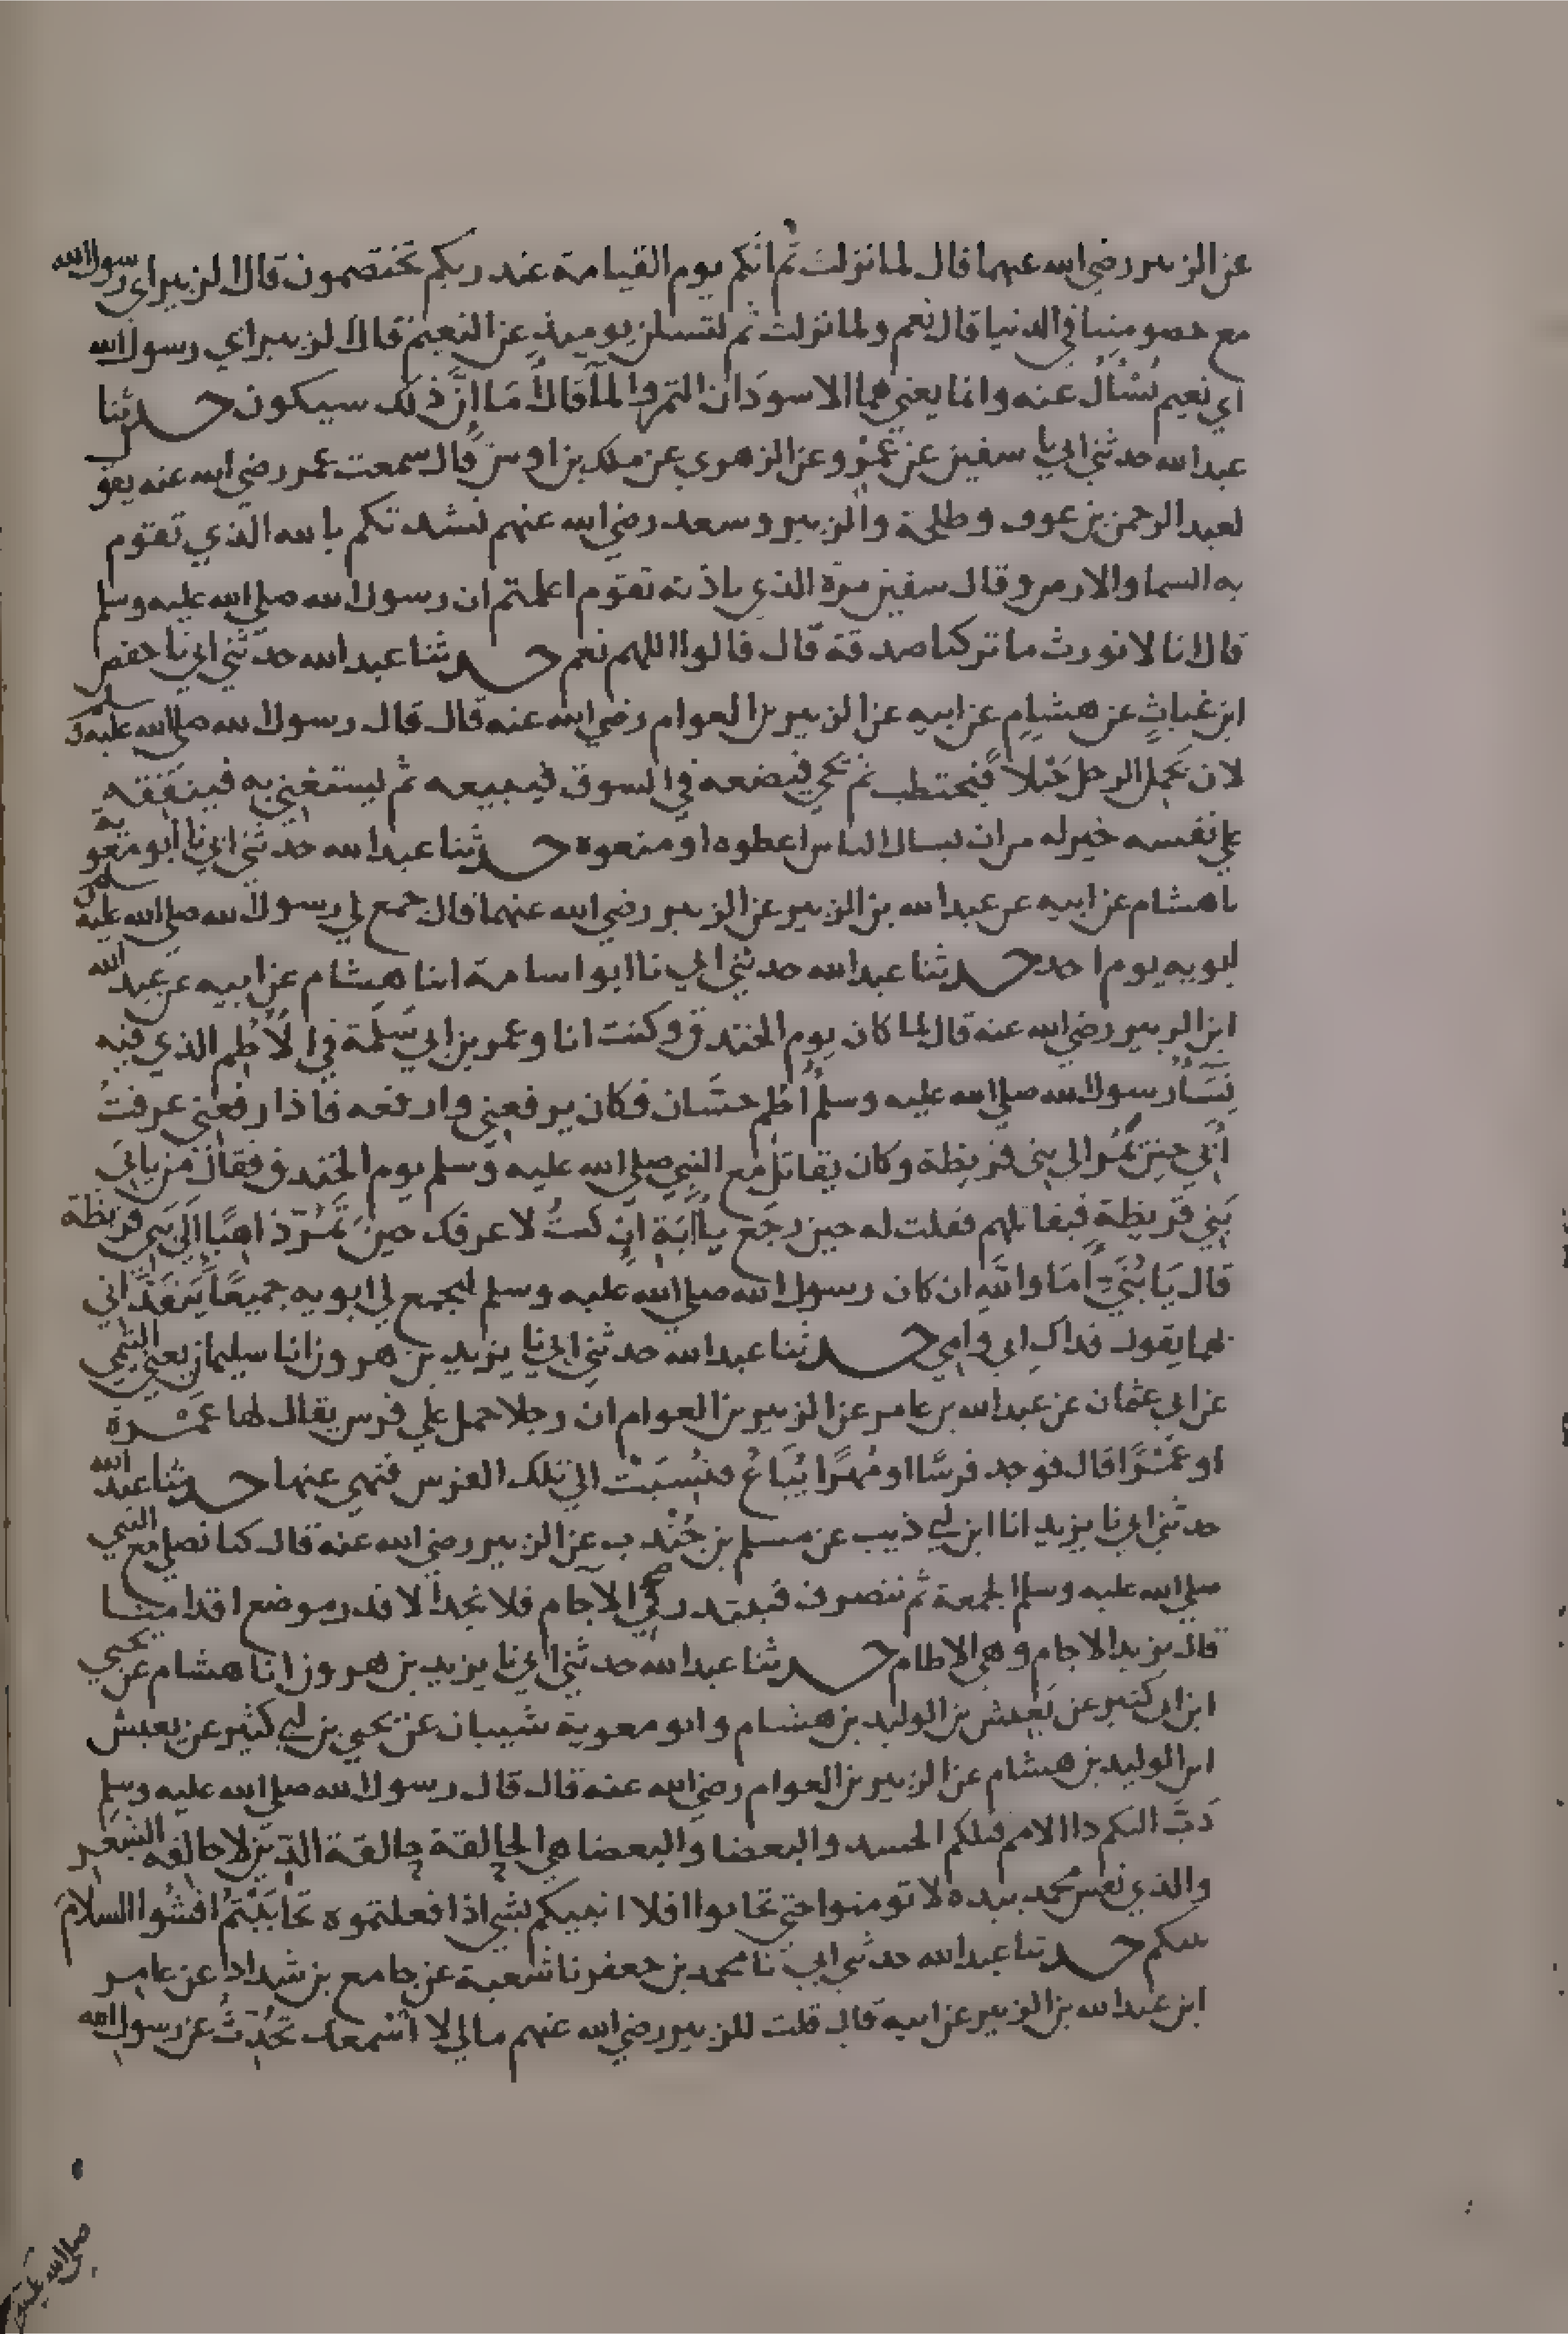 عن الزبير رضي الله عنهما قال لما نزلت ثم انكم يوم القيامة عند ربكم تختصمون قال الزبير اي رسول الله
مع خصومتنا في الدنيا قال نعم ولما نزلت ثم لتسلن يوميذ عن النعيم قال الزبير اي رسول الله
اي نعيم نُسْأَلُ عنه وانما يعني هما الاسودان التمر والمآ قال اَمَا اِنَّ ذلك سيكون حدثنا
عبد الله حدثني ابي نا سفين عن عَمْرو عن الزهري عن ملك بن اوس قال سمعت عمر رضي الله عنه يقو
لعبد الرحمن بن عوف وطلحة والزبير وسعد رضي الله عنهم نشدتكم بالله الذي تقوم
به السما والارض وقال سفين مرّة الذي باذنه تقوم اعلمتم ان رسول الله صلى الله عليه وسلم
قال انا لا نورث ما تركنا صدقة قال قالوا اللهم نعم حدثنا عبد الله حدّثني ابي نا حفص
ابن غياثٍ عن هشامٍ عن ابيه عن الزبير بن العوام رضي الله عنه قال قال رسول الله صلى الله عليه وسلم
لان يَحْمِلَ الرجل حَبْلاً فيحتطب ثم يجي فيضعه في السوق فيبيعه ثم ليستغني به فينفقه
على نفسه خير له من ان يسال الناس اعطوه او منعوه حدثنا عبد الله حدّثني ابي نا ابو معوية
نا هشام عن ابيه عن عبد الله بن الزبير عن الزبير رضي الله عنهما قال جمع لي رسول الله صلى الله عليه وسلم
ابويه يوم احد حدثنا عبد الله حدثني ابي نا ابو اسامة انا هشام عن ابيه عن عبد الله
ابن الزبير رضي الله عنه قال لما كان يوم الخندق وكنت انا وعمر بن ابي سَلَمَة في الاُطُم الذي فيه
نِسَاُ رسول الله صلى الله عليه وسلم اُطُم حسَّان فكان يرفعني وارفعه فاذا رفعني عرفتُ
اَبِي حين يَمُرُّ الى بني قريظة وكان يقاتل مع النبي صلى الله عليه وسلم يوم الخندق فقال من ياتي
بَنِي قريظةِ فيقاتلهم فقلت له حين رجع يا اَبَةِ اِن كنتُ لاعرفك حين تَمُرّ ذاهبًا اِلى بَنِي قريظة
قال يَا بُنَيَّ اَمَا واللهِ ان كان رسول الله صلى الله عليه وسلم ليجمع لي ابويه جميعًا يُفَدّيني
بهما يقول فداك ابي وامي حدثنا عبد الله حدثني ابي نا يزيد بن هرون انا سليمان يعني التيمي
عن ابي عثمان عن عبد الله بن عامر عن الزبير بن العوام ان رجلا حمل على فرس يقال لها غَمْرة
او غَمْرًا قال فوجد فرسًا او مُهرًا يُبَاعُ فنُسِبَتْ الى تلك الفرس فنهي عنها حدثنا عبد الله
حدثني ابي نا يزيد انا ابن ابي ذيب عن مسلم بن جُنْدب عن الزبير رضي الله عنه قال كنا نصلي مع النبي
صلى الله عليه وسلم الجمعة ثم ننصرف فنبتدر في الآجام فلا نجد الا قدر موضع اقدامنا
قال يزيد الاجام وهي الاطام حدثنا عبد الله حدثني ابي نا يزيد بن هرون انا هشام عن يحيى
ابن ابي كثير عن يَعِيش بن الوليد بن هشام وابو معوية شيبان عن يحيى بن ابي كثير عن يعيش
ابن الوليد بن هشام عن الزبير بن العوام رضي الله عنه قال قال رسول الله صلى الله عليه وسلم
دَبَّ اليكم دا الامم قبلكم الحسد والبغضا والبغضا هي الحالقة حالقة الدّين لا حالقة الشعَر
والذي نفس محمد بيده لا تومنوا حتى تحابوا افلا انبيكم بشي اذا فعلتموه تحابَبْتم افشُوا السلام
بينكم حدثنا عبد الله حدثني ابي نا محمد بن جعفر نا شعبة عن جامع بن شداد عن عامر
ابن عبد الله بن الزبير عن ابيه قال قلت للزبير رضي الله عنهم مالي لا اسمعك تُحَدّثُ عن رسول الله
صلى الله عليه